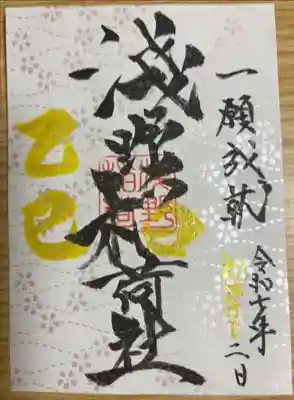 一願成就
浅野稲荷社
乙巳
令和七年
二日